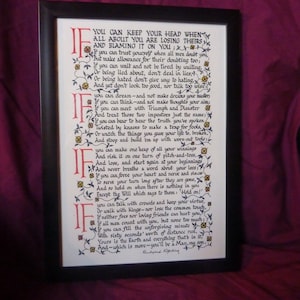 IF YOU CAN KEEP YOUR HEAD WHEN
ALL ABOUT YOU ARE LOSING THEIRS
AND BLAMING IT ON YOU
If you can trust yourself when all men doubt you,
But make allowance for their doubting too;
If you can wait and not be tired by waiting,
Or being lied about, don't deal in lies,
Or being hated don't give way to hating,
And yet don't look too good, nor talk too wise
IF you can dream—and not make dreams your master
If you can think—and not make thoughts your aim
If you can meet with Triumph and Disaster
And treat those two impostors just the same
If you can bear to hear the truth you've spoken
Twisted by knaves to make a trap for fools,
Or watch the things you gave your life to, broken
And stoop and build 'em up with worn-out tools
IF you can make one heap of all your winnings
And risk it on one turn of pitch-and-toss,
And lose, and start again at your beginnings
And never breathe a word about your loss
If you can force your heart and nerve and sinew
To serve your turn long after they are gone,
And so hold on when there is nothing in you
Except the Will which says to them: 'Hold on'
IF you can talk with crowds and keep your virtue
Or walk with Kings—nor lose the common touch,
If neither foes nor loving friends can hurt you,
If all men count with you, but none too much
If you can fill the unforgiving minute
With sixty seconds' worth of distance run,
Yours is the Earth and everything that's in it,
And—which is more—you'll be a Man, my son
Rudyard Kipling